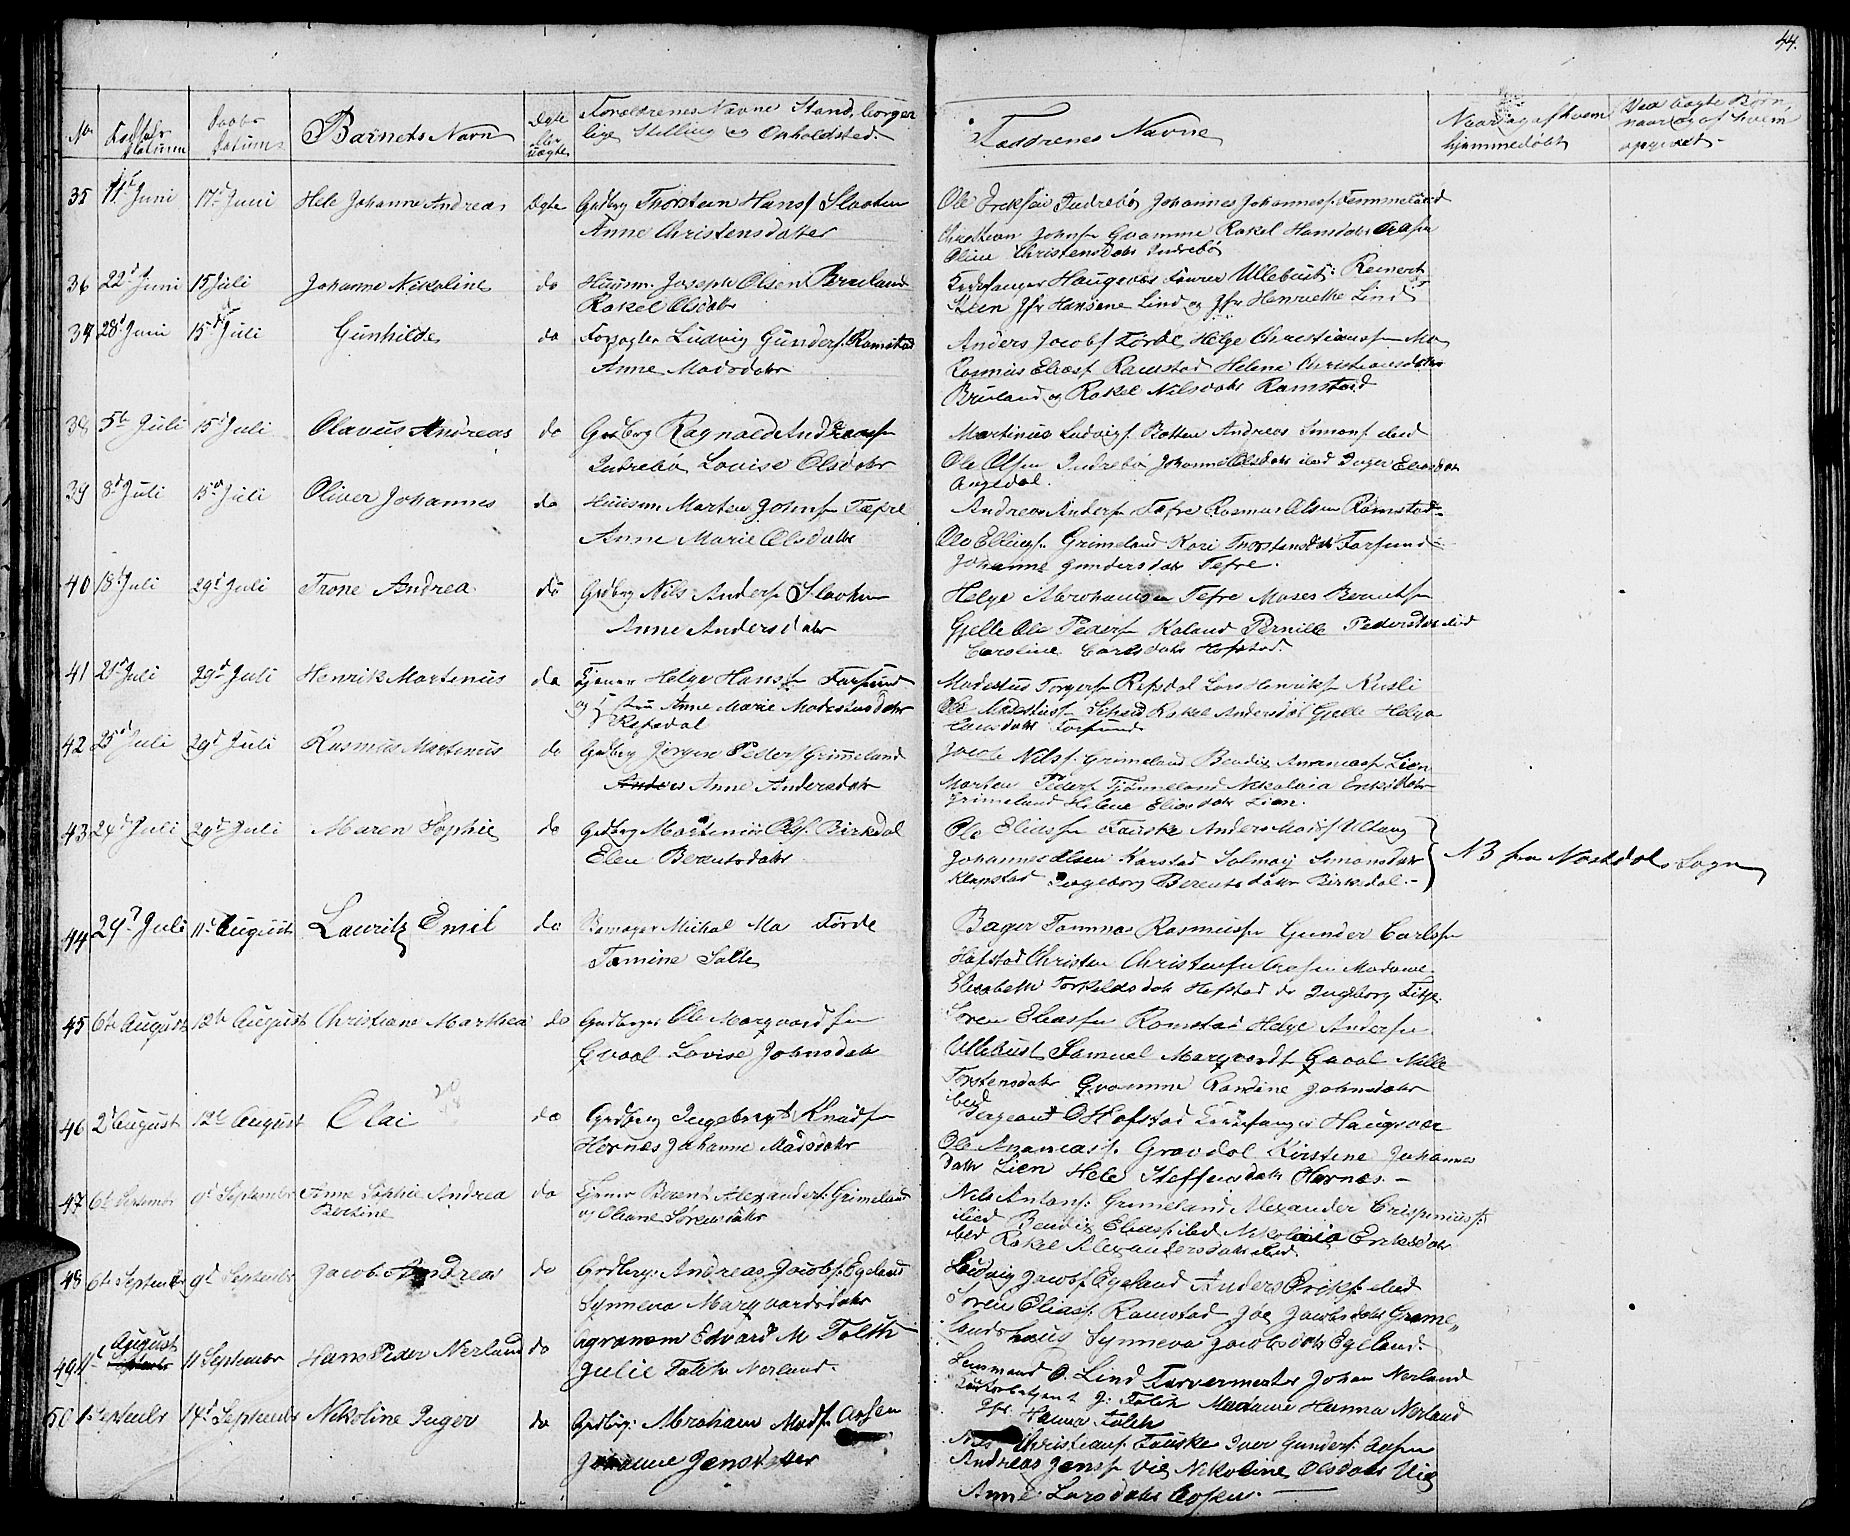 44.
No
Fødsels Datum
Daabs Datum
Barnets Navn
Ægte eller uægte
Forældrenes Navne Stand, borger
lige Stilling og Opholdsted.
Faddrenes Navne
Naar og af hvem
hjemmedøbt
Ved uægte Børn,
naar og af hvem
opgivet
35 11te Juni 17de Juni Hele Johanne Andrea Ægte Gadbrg Thorsteen Hansf Slaatten
Anne Christensdatter
Ole Eriksen Indrebø Johannes Johannesf.
Christian Johnsf Qvamme Rakel Hansdatr Aasen
Oline Christensdatr Indrebø
36 22d Juni 15 Juli Johanne Nikoline do Huusm. Joseph Olsen Bruland
Rakel Olsdatr
Kirkesanger Haugsvær Ullebust Reinert
Steen Jfr Hansene Lind og Jfr Henriette Lind
37 28d Juni 15d Juli Gunhilde do Forpagter Ludvig Gundersf. Ramstad
Anne Madsdatr
Anders Jacobsf Førde Helge Christiansf Mo
Rasmus Eliasf Ramstad Helene Christiansdatr
Bruland og Rakel Nilsdatr Ramstad
38 5te Juli 15d Juli Olavus Andreas do Gadbrg Ragnald Andreasf
Indrebø Lovise Olsdatr
Martinus Ludvigsf. Slotten Andreas Simonsf ibid
Ole Olsen Indrebø Johanne Olsdatr ibid Inger Eliasdatr
Angedal.
39 8d Juli 15d Juli Oliver Johannes do Huusm Marten Johnsf Tefre
Anne Marie Olsdatr
Andreas Andersf Tefre Rasmus Olsen Ramstad
Ole Ellingsf. Grimeland Kari Thorstensdatr Farsund
Johanne Gundersdatr Tefre.
40 18d Juli 29d Juli Trone Andrea do Gadbrg Nils Andersf Slaatten
Anne Andersdatr
Helge Abrahamsen Tefre Moses Berentsf
Gjelle Ole Pedersf Kaland Pernille Pedersdatr ibid
Caroline Carlsdatr Hafstad.
41 21d Juli 29d Juli Henrik Martinus do Tjener Helge Hansf Farsund
og Anne Marie Modestusdatr
Refsdal
Modestus Torgersf Refsdal Lars Henriksf Rusli
Ole Modestusf Rakel Andersdatr Gjelle Helga
Hansdatr Farsund
42 25d Juli 29d Juli Rasmus Martinus do Gadbrg Jørgen Pedersf Grimeland
Anders Anne Andersdatr
Jacob Nilsf. Grimeland Bendix Ananiasf Lien
Marten Pedersf Tjønneland Nikolaia Eriksdatr
Grimeland Helene Eliasdatr Lien.
43 24d Juli 29d Juli Maren Sophie do Gadbrg Martinus Olsf. Birkdal
Elen Berentsdatr
Ole Eliasf Fauske Anders Madsf Ultang
Johannes Olsen Karstad Solmøy Simonsdatr
Klopstad Ingeborg Berentsdatr Birkedal.
NB fra Nostdals Sogn
44 29d Juli 11te August Lauritz Emil do Michal Mo Førde
Tomine Salte
Bager Tommas Rasmusf Gunder Carlsf
Hafstad Christen Christensen Aasen Madame
Elisabeth Torkeldsdatr Hefstad do Ingeborg
45 6te August 12te August Christiane Marthea do Gadbrger Ole Marqvardsen
Qvaal Lovise Johnsdatr
Søren Eliasf Ramstad Helge Andersen
Ullebust Samuel Marqvardsf Qvaal Mille
Torstensdatr Qvamme Randine Johnsdatr
ibid
46 2d August 12te August Olai do Gadbrg Ingebregt Knudsf
Hornæs Johanne Madsdatr
Sergeant O Hofstad Kirkesanger Haugsvær
Ole Ananiasf. Gravdal Kirstene Johannes
datr Lien Hele Steffensdatr Hornæs.
47 6te September 9d September Anne Sophie Andrea
Bertine do Tjener Berent Alexandersf. Grimeland
og Oliane Sørensdatr
Nils Antonsf. Grimeland Alexander Crispiniusf:
ibid Bendix Eliasf ibid Nikolaia Eriksdatr
ibid Rakel Alexandersdatr ibid.
48 6te September 9d September Jacob Andreas do Gadbrg: Andreas Jacobsf. Egeland
Synneva Marqvardsdatr
Ludvig Jacobsf Egeland Anders Eriksf ibid
Søren Eliasf. Ramstad Joe Jacobsdatr Grime
landshaug Synneva Jacobsdatr Egeland.
49 4de August September 11 September Hans Peder Nerland do Agronom Edvard M Falch
Julie Falch Nerland.
Lensmand O. Lind Farvermester Johan Nerland
J. Falch Madame Hanna Nerland
Jfr. Hanna Falch
50 1 September 14d September Nikoline Inger do Gadbrg: Abraham Madsf Aasen
Johanne Jensdatter
Nils Christiansf. Fauske Iver Gundersf. Aasen
Andreas Jensf Vie Nikoline Olsdatr Vie
Anne Larsdatr Aasen.